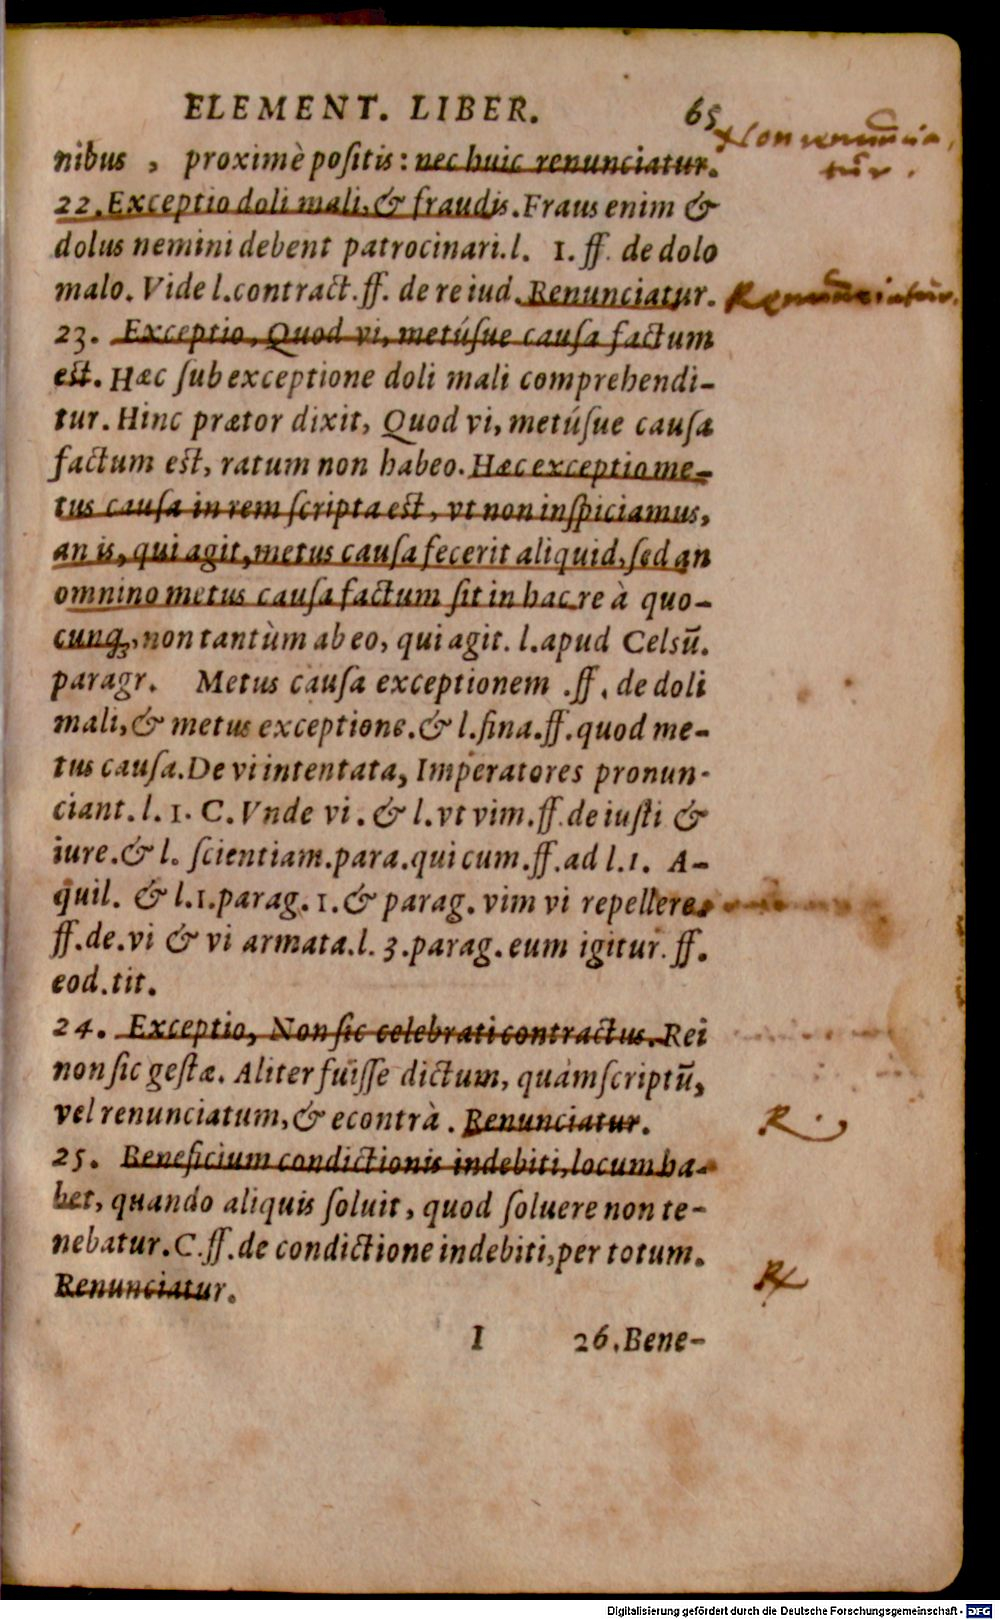 ELEMENT. LIBER. 65
Non renūncia
tūr.
nibus , proximè poſitis: nec huic renunciatur.
22. Exceptio doli mali, & fraudis. Fraus enim &
dolus nemini debent patrocinari. l. 1. ff. de dolo
malo. Vide l. contract. ff. de re iud. Renunciatur.
Renūnciatūr.
23. Exceptio, Quod vi, metúſue cauſa factum
est. Hæc ſub exceptione doli mali comprehendi-
tur. Hinc prætor dixit, Quod vi, metúſue cauſa
factum est, ratum non habeo. Hæc exceptio me-
tus cauſa in rem ſcripta est, vt non inſpiciamus,
an is, qui agit, metus cauſa fecerit aliquid, ſed an
omnino metus cauſa factum ſit in hac re à quo-
cunq;, non tantùm ab eo, qui agit. l. apud Celsū.
paragr. Metus cauſa exceptionem .ff. de doli
mali, & metus exceptione. & l. fina. ff. quod me-
tus cauſa. De vi intentata, Imperatores pronun-
ciant. l. 1. C. Vnde vi. & l. vt vim. ff. de iusti &
iure. & l. ſcientiam. para. qui cum. ff. ad l. 1. A-
quil. & l. 1. parag. 1. & parag. vim vi repellere.
ff. de. vi & vi armata. l. 3. parag. eum igitur. ff.
eod. tit.
24. Exceptio, Non ſic celebrati contractus. Rei
non ſic gestæ. Aliter fuiſſe dictum, quàm ſcriptū,
vel renunciatum, & econtrà. Renunciatur.
R.
25. Beneficium condictionis indebiti, locum ha-
bet, quando aliquis ſoluit, quod ſoluere non te-
nebatur. C. ff. de condictione indebiti, per totum.
Renunciatur.
R
I 26. Bene-
Digitalisierung gefördert durch die Deutsche Forschungsgemeinschaft - DFG